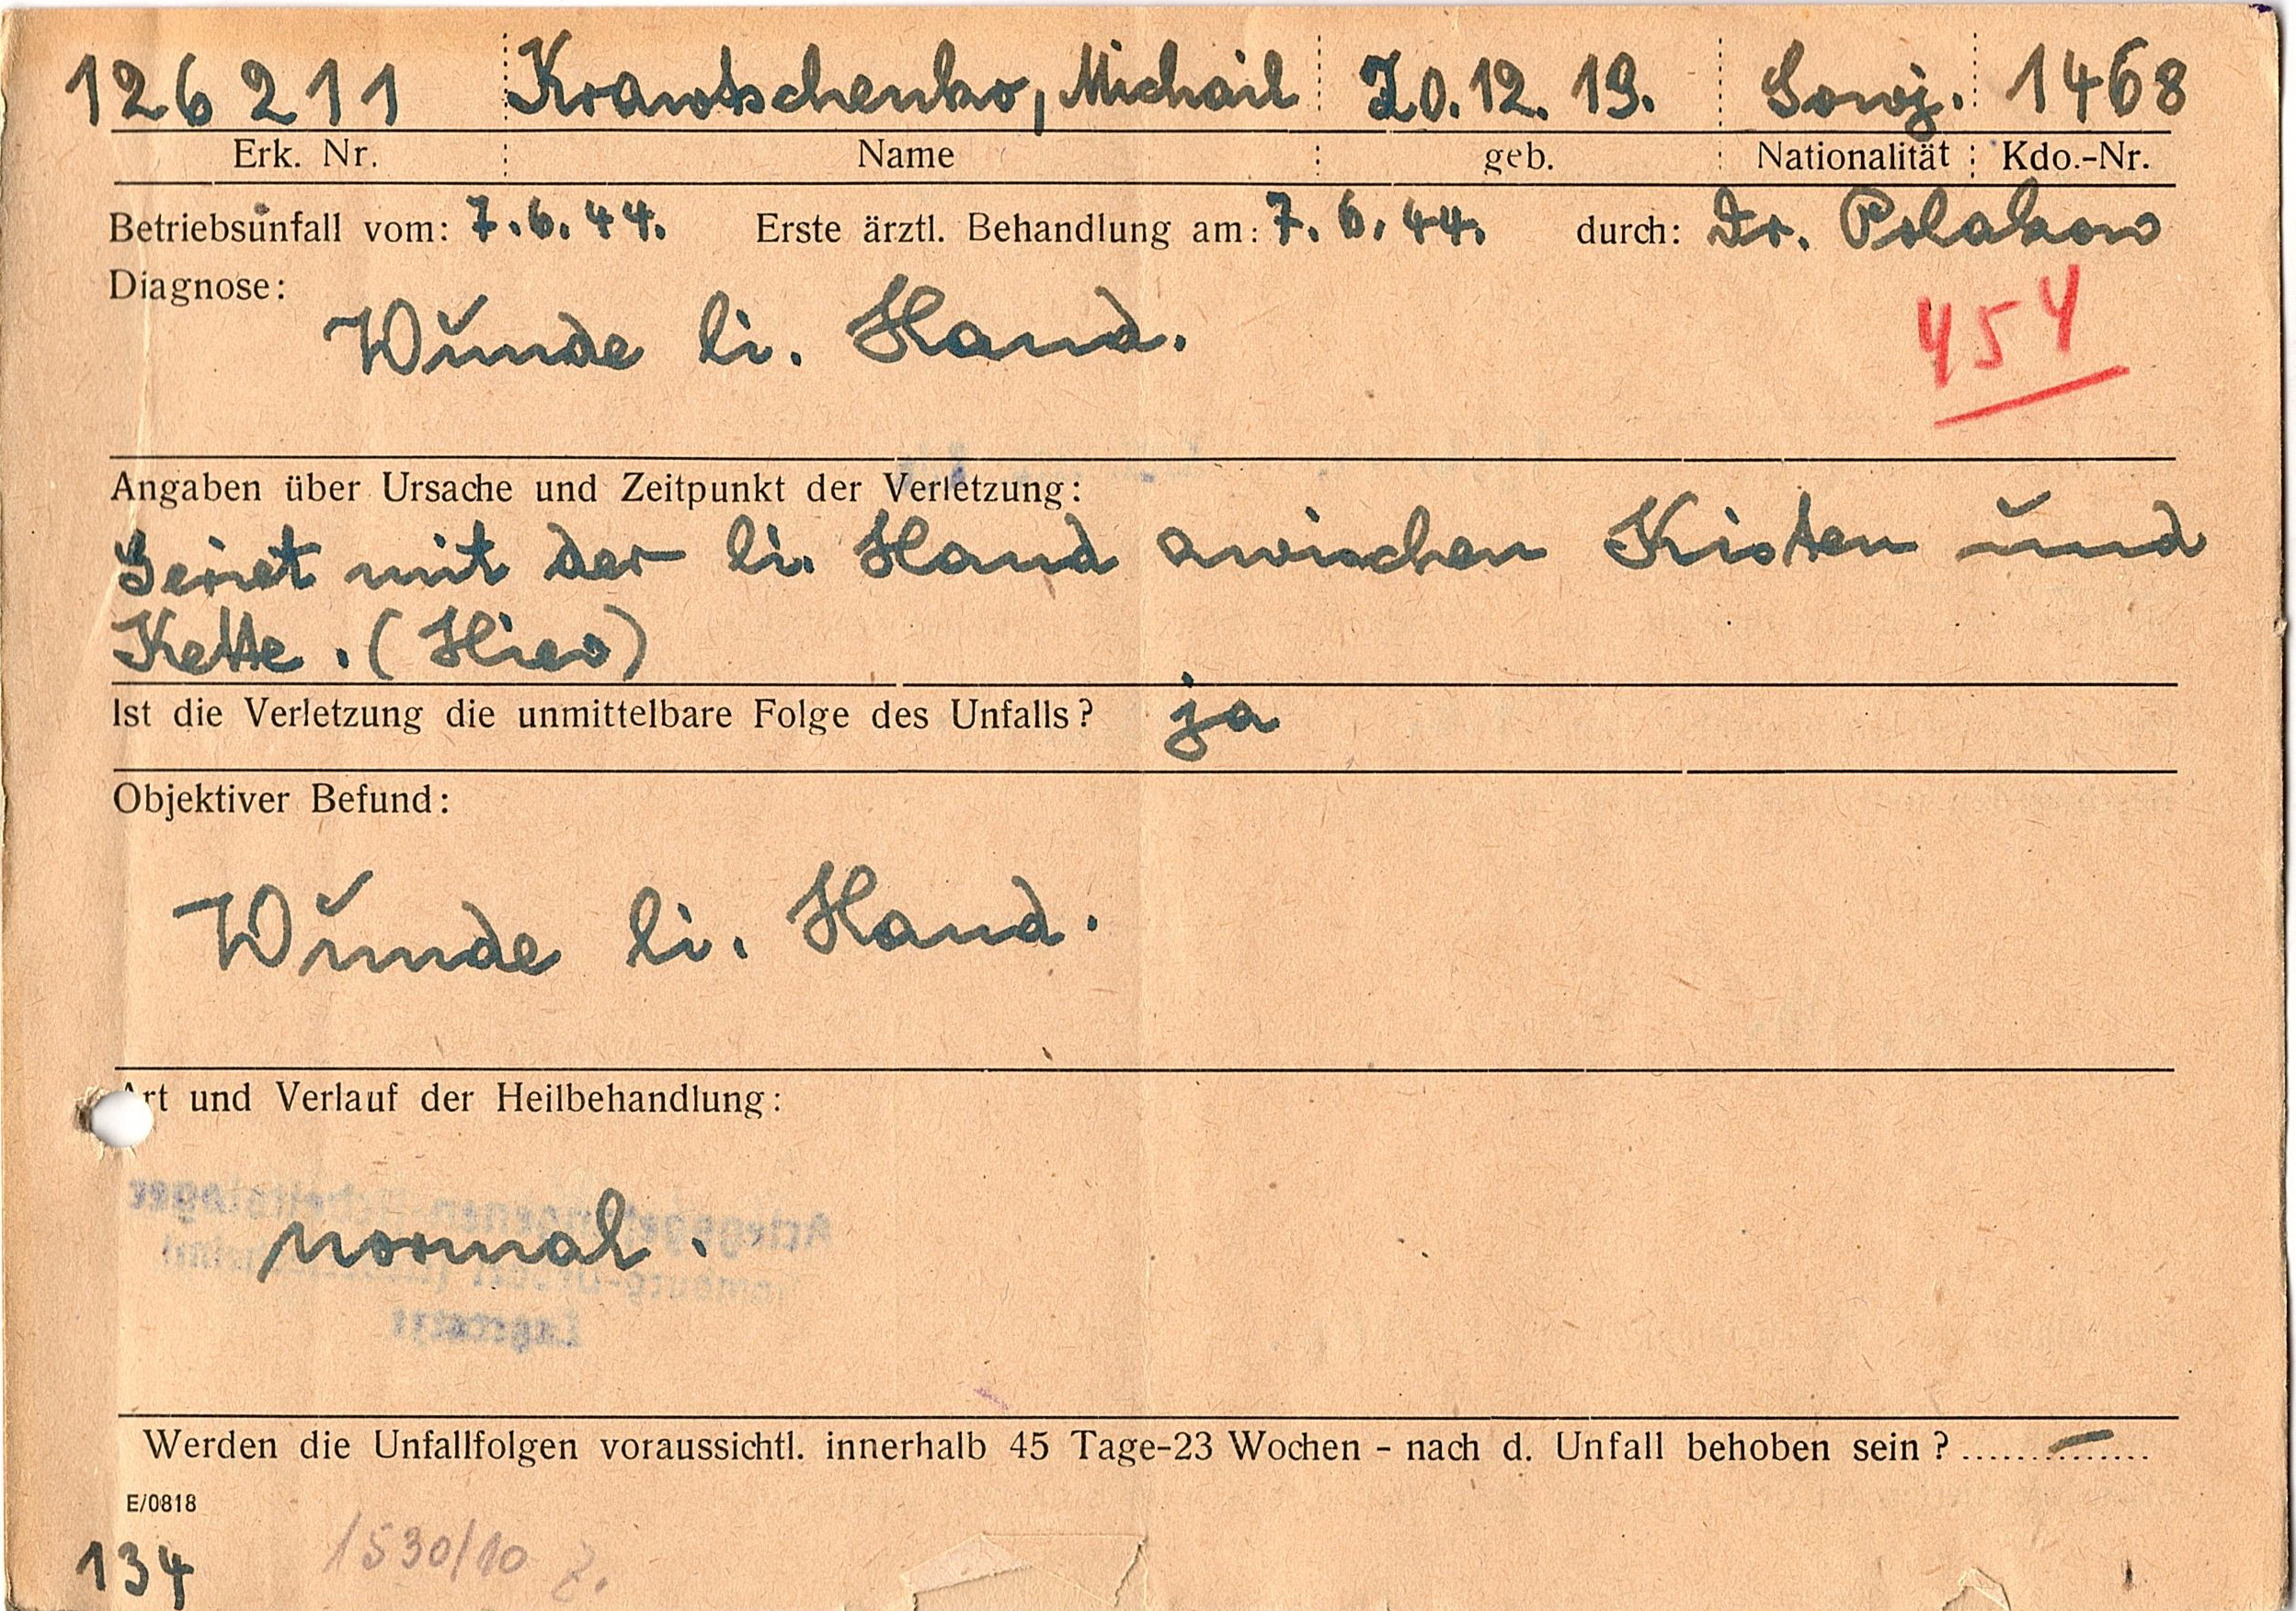 126 211 Krawtschenko, Michail 20.12.19. Sowj. 1468
Erk. Nr. Name geb. Nationalität Kdo.-Nr.
Betriebsunfall vom: 7.6.44. Erste ärztl. Behandlung am: 7.6.44. durch: Dr. Polakow
Diagnose:
Wunde li. Hand.
454
Angaben über Ursache und Zeitpunkt der Verletzung:
Geriet mit der li. Hand zwischen Kisten und
Kette. (Hiev)
Ist die Verletzung die unmittelbare Folge des Unfalls? ja
Objektiver Befund:
Wunde li. Hand.
Art und Verlauf der Heilbehandlung:
normal.
Werden die Unfallfolgen voraussichtl. innerhalb 45 Tage-23 Wochen - nach d. Unfall behoben sein? –
E/0818
134 1530/10 Z.